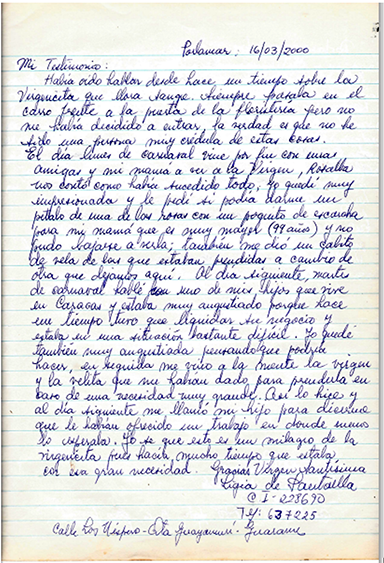 Porlamar: 16/03/2000
Mi Testimonio:
Había oído hablar desde hace un tiempo sobre la
Virgencita que llora sangre. Siempre pasaba en el
carro frente a la puerta de la floristería pero no
me había decidido a entrar, la verdad es que no he
sido una persona muy crédula de estas cosas.
El día lunes de carnaval vine por fin con unas
amigas y mi mamá a ver a la Virgen,
nos contó como había sucedido todo, yo quedé muy
impresionada y le pedí si podía darme un
pétalo de una de las rosas con un poquito de escarcha
para mi mamá que es muy mayor (99 años) y no
pudo bajarse a verla; también me dió un cabito
de vela de las que estaban prendidas a cambio de
otra que dejamos aquí. Al día siguiente, martes
de carnaval hablé con uno de mis hijos que vive
en Caracas y estaba muy angustiado porque hace
un tiempo tuvo que liquidar su negocio y
estaba en una situación bastante difícil. Yo quedé
también muy angustiada pensando que podría
hacer, en seguida me vino a la mente la virgen
y la velita que me habían dado para prenderla en
caso de una necesidad muy grande. Así lo hice y
al día siguiente me llamó mi hijo para decirme
que le habían ofrecido un trabajo en donde menos
lo esperaba. Yo se que este es un milagro de la
virgencita pues hacía mucho tiempo que estaba
con esa gran necesidad. Gracias Virgen Santísima
Ligia de
C I- 223690
Telf: 637225
Calle Los Níspero - Qta Guayamurí - Guacuco